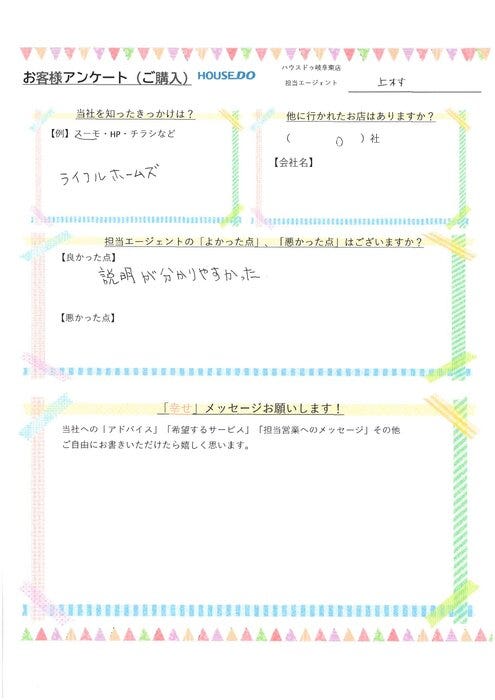 ハウスドゥ岐阜東店
お客様アンケート（ご購入） HOUSE DO 担当エージェント 上村
当社を知ったきっかけは？
【例】スーモ・HP・チラシなど
ライフルホームズ
他に行かれたお店はありますか？
（ 0 ）社
【会社名】
担当エージェントの「よかった点」、「悪かった点」はございますか？
【良かった点】
説明が分かりやすかった
【悪かった点】
「幸せ」メッセージお願いします！
当社への「アドバイス」「希望するサービス」「担当営業へのメッセージ」その他
ご自由にお書きいただけたら嬉しく思います。